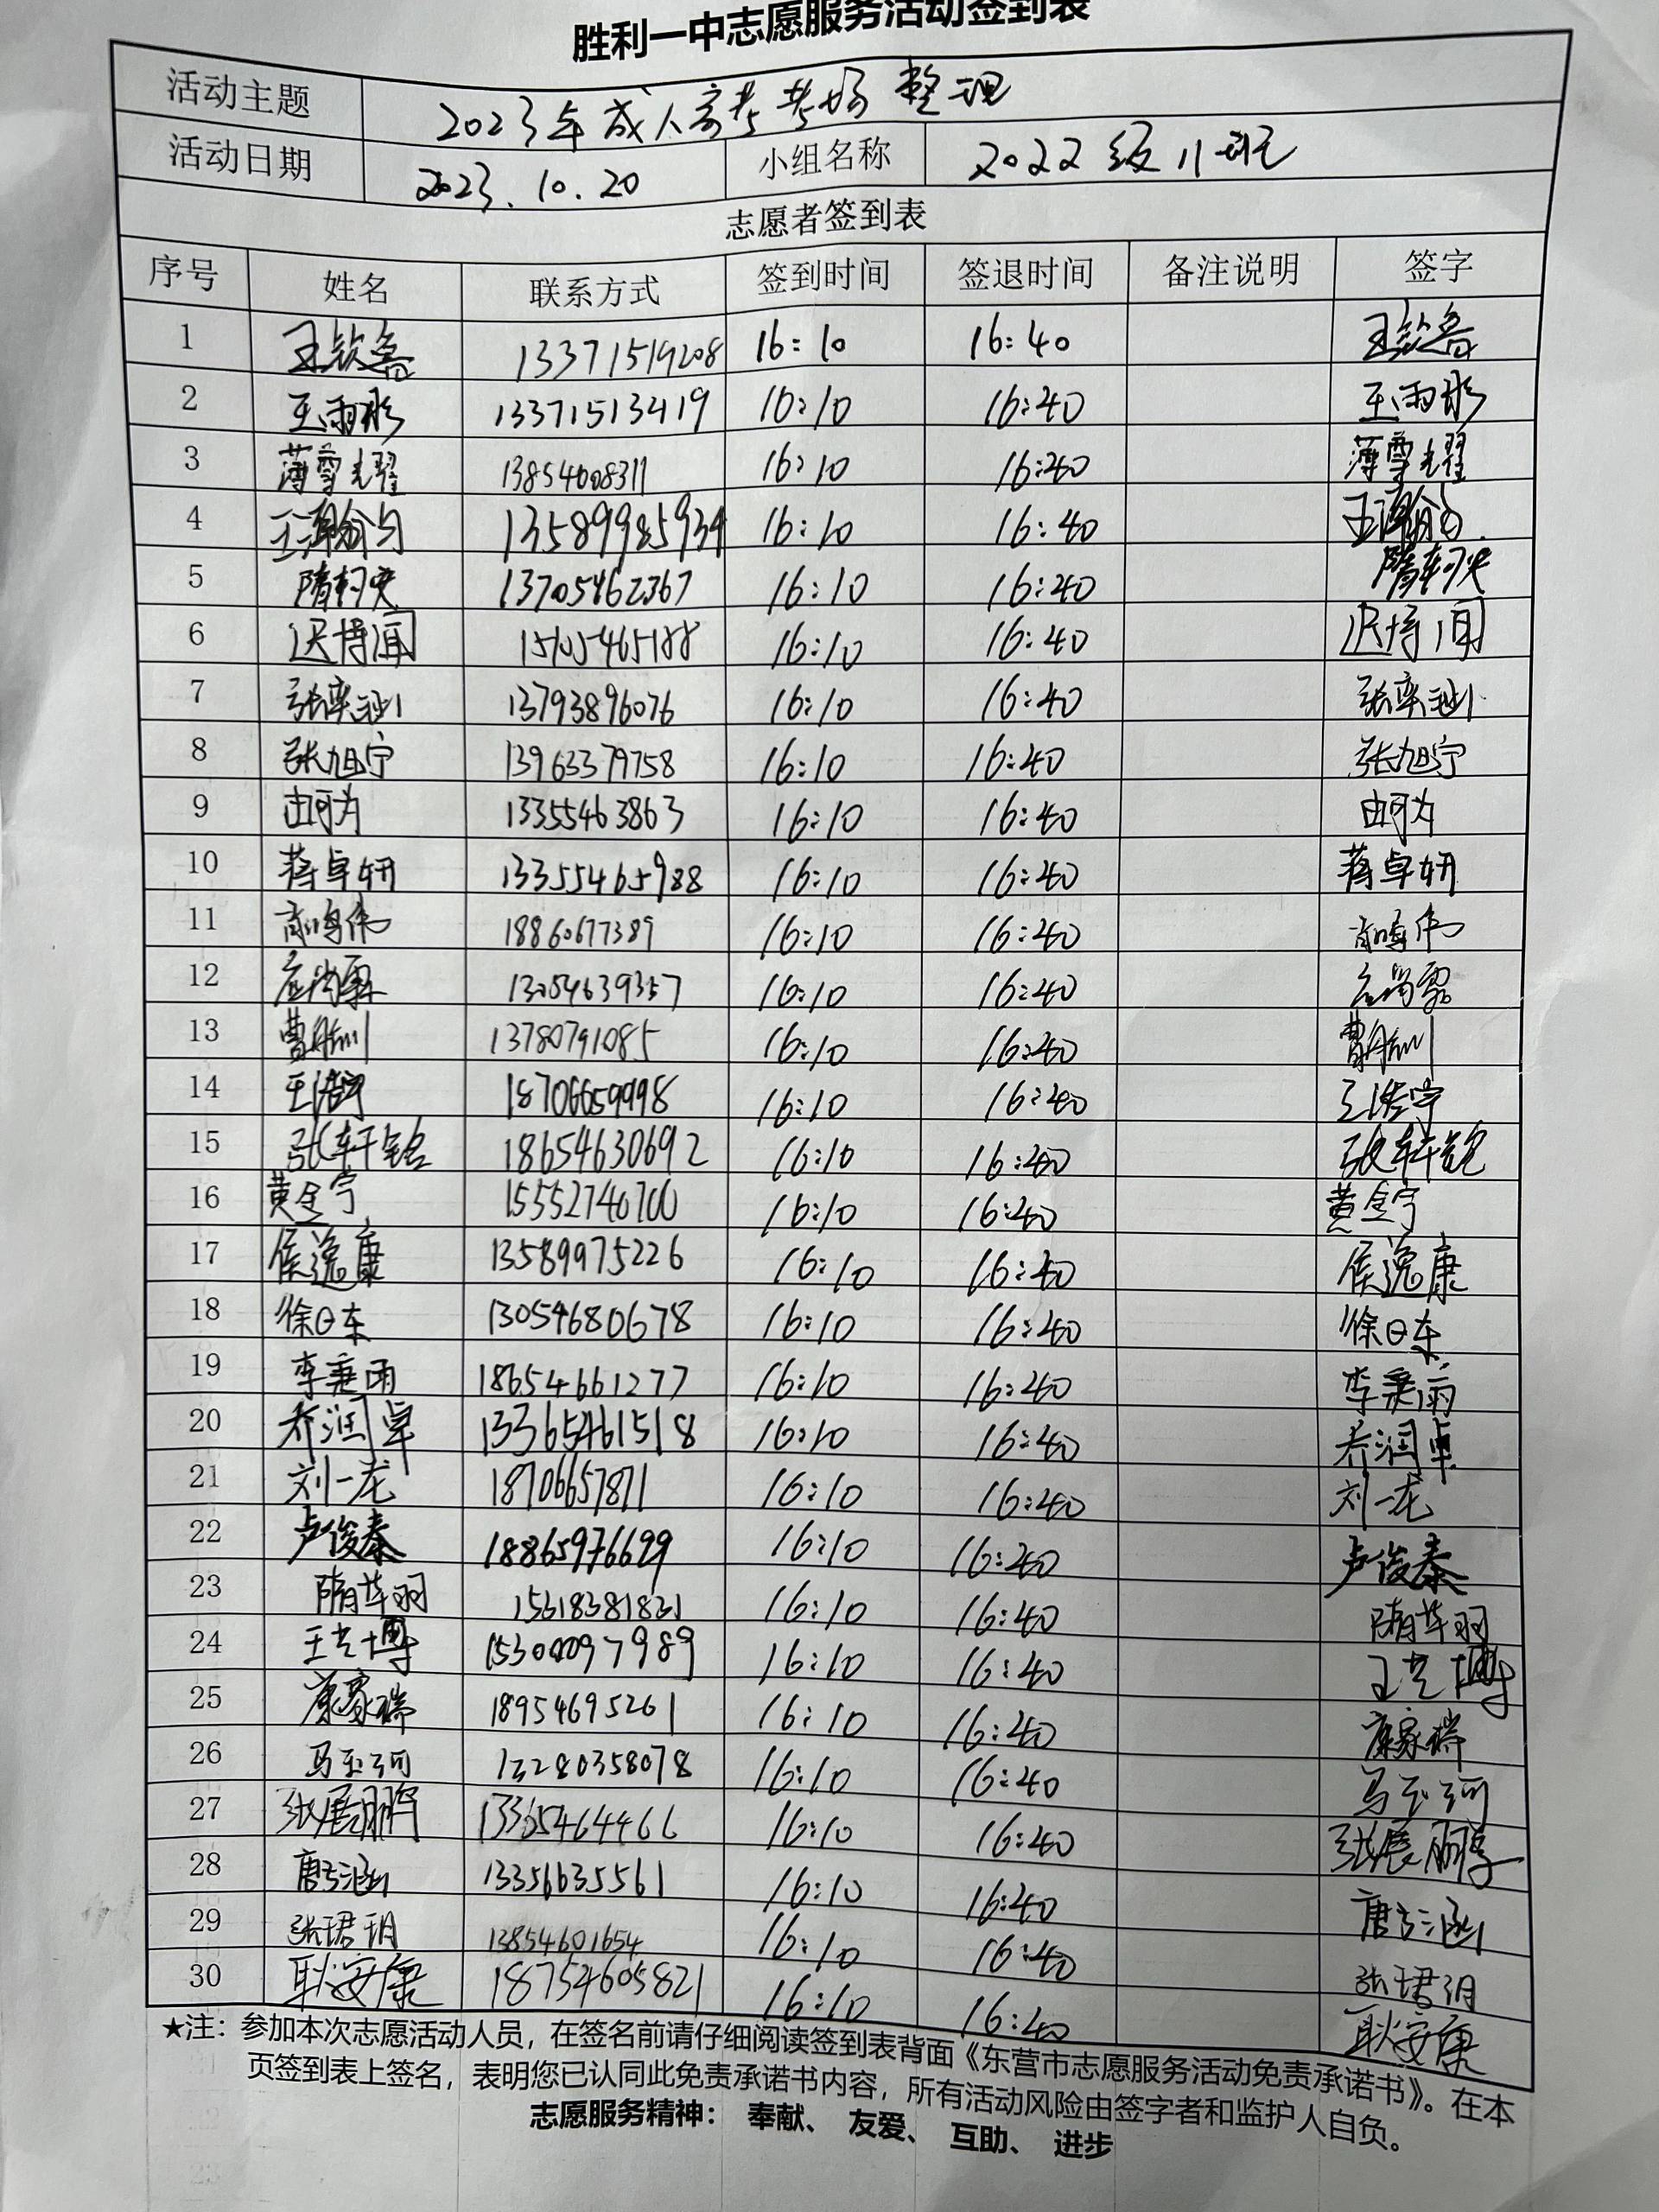 胜利一中志愿服务活动签到表
活动主题 2023年成人高考考场整理
活动日期 2023.10.20 小组名称 2022级11班
志愿者签到表
序号 姓名 联系方式 签到时间 签退时间 备注说明 签字
1 王钦鲁 13371519208 16:10 16:40 王钦鲁
2 王雨彤 13371513419 16:10 16:40 王雨彤
3 薄雪耀 13854608311 16:10 16:40 薄雪耀
4 13589985934 16:10 16:40
5 隋轲央 13705462367 16:10 16:40 隋轲央
6 迟博闻 15105465188 16:10 16:40 迟博闻
7 张栾涵 13793896076 16:10 16:40 张栾涵
8 张旭宁 13963379758 16:10 16:40 张旭宁
9 由可为 13355463863 16:10 16:40 由可为
10 蒋卓妍 13355465988 16:10 16:40 蒋卓妍
11 18860677389 16:10 16:40
12 13054639357 16:10 16:40
13 13780791085 16:10 16:40
14 王浩宇 18706659998 16:10 16:40 王浩宇
15 张轩铭 18654630692 16:10 16:40 张轩铭
16 黄金宁 15552740700 16:10 16:40 黄金宁
17 侯逸康 13589975226 16:10 16:40 侯逸康
18 徐日东 13054680678 16:10 16:40 徐日东
19 李秉雨 18654661277 16:10 16:40 李秉雨
20 乔润卓 13365461518 16:10 16:40 乔润卓
21 刘一龙 18706657871 16:10 16:40 刘一龙
22 卢俊泰 18865976699 16:10 16:40 卢俊泰
23 隋华羽 15318381831 16:10 16:40 隋华羽
24 王艺博 15300097989 16:10 16:40 王艺博
25 康家瑞 18954695261 16:10 16:40 康家瑞
26 马玉河 13280358078 16:10 16:40 马玉河
27 张展鹏 13365464466 16:10 16:40 张展鹏
28 13356635561 16:10 16:40
29 张珺玥 13854601654 16:10 16:40 张珺玥
30 耿安康 18754605821 16:10 16:40 耿安康
★注：参加本次志愿活动人员，在签名前请仔细阅读签到表背面《东营市志愿服务活动免责承诺书》。在本
页签到表上签名，表明您已认同此免责承诺书内容，所有活动风险由签字者和监护人自负。
志愿服务精神： 奉献、 友爱、 互助、 进步